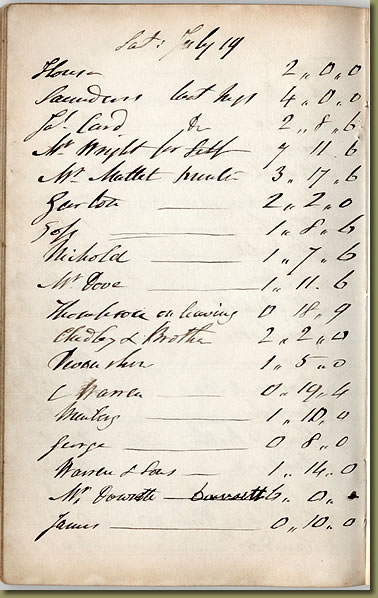 Sat: July 19
House 2 ,, 0 ,, 0
Saunders last 4 ,, 0 ,, 0
Card 2 ,, 8 ,, 6
Mr Wright for Self 7 11 ,, 6
Mr Mallet 3 ,, 17 ,, 6
2 ,, 2 ,, 0
Goff 1 ,, 8 ,, 6
Nichold 1 ,, 7 ,, 6
Mr Dove 1 ,, 11 ,, 6
on leaving 0 18 ,, 9
Chidley & Brother 2 ,, 2 ,, 0
1 ,, 5 ,, 0
C Warren 0 ,, 19 ,, 4
1 ,, 10 ,, 0
George 0 8 ,, 0
Warren & Sons 1 ,, 14 ,, 0
Mr 6 ,, 0 ,,
James 0 ,, 10 ,, 0